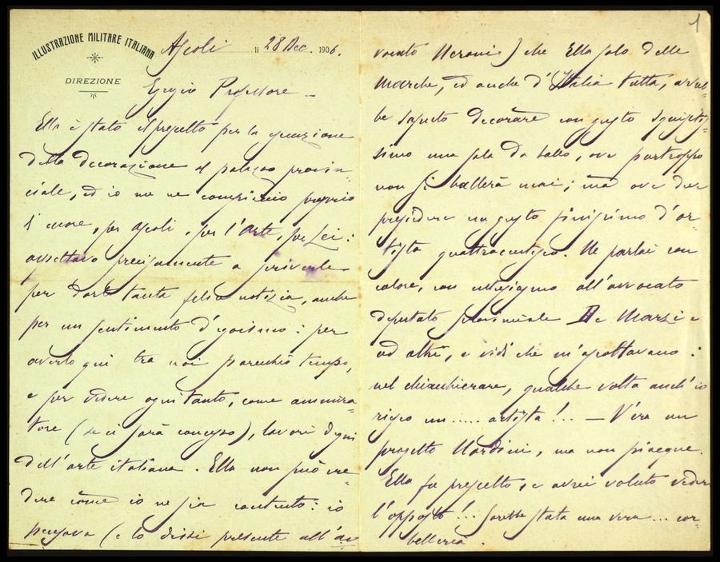 ILLUSTRAZIONE MILITARE ITALIANA
DIREZIONE
Ascoli li 28 Dec. 1906.
Egregio Professore –
Ella è stato il prescelto per la esecuzione
della decorazione del palazzo provin-
ciale, ed io me ne compiaccio proprio
di cuore, per Ascoli, per l'arte, per Lei:
aspettavo precisamente a scriverle
per darle tanta felice notizia, anche
per un sentimento d'egoismo: per
averlo qui tra noi parecchio tempo,
e per vedere ogni tanto, come ammira-
tore (se ci sarà concesso), lavori degni
dell'arte italiana. Ella non può cre-
dere come io ne sia contento: io
pensavo (e lo dissi presente all'av-
1
vocato Neroni) che Ella solo delle
Marche, ed anche d'Italia tutta, avreb-
be saputo decorare con gusto squisitis-
simo una sala da ballo, ove purtroppo
non si ballerà mai; ma ove deve
presiedere un gusto finissimo d'ar-
tista quattrocentesco. Ne parlai con
calore, con all'avvocato
deputato provinciale De Marzi e
ad altri, e vidi che m'ascoltavano:
nel chiacchierare, qualche volta anch'io
riesco un..... artista!.. – V'era un
progetto Nardini, ma non piacque.
Ella fu prescelto, e avrei voluto vedere
l'opposto!.. sarebbe stata una vera... cor-
belleria.